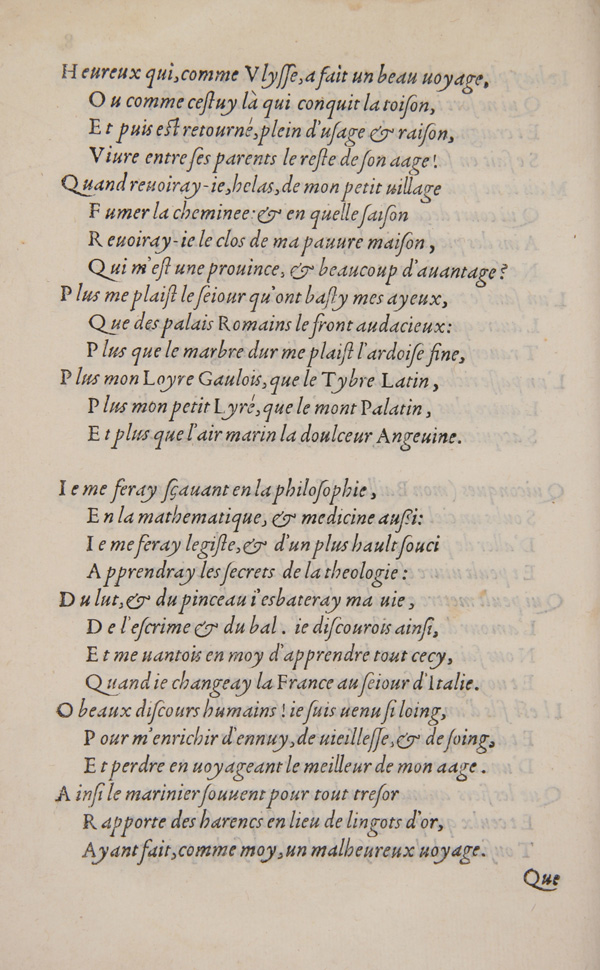 Heureux qui, comme Vlyſſe, a fait un beau uoyage,
Ou comme ceſtuy là qui conquit la toiſon,
Et puis eſt retourné, plein d'uſage & raiſon,
Viure entre ſes parents le reſte de ſon aage!
Quand reuoiray-ie, helas, de mon petit uillage
Fumer la cheminee: & en quelle ſaiſon
Reuoiray-ie le clos de ma pauure maiſon,
Qui m'eſt une prouince, & beaucoup d'auantage?
Plus me plaiſt le ſeiour qu'ont baſty mes ayeux,
Que des palais Romains le front audacieux:
Plus que le marbre dur me plaiſt l'ardoiſe fine,
Plus mon Loyre Gaulois, que le Tybre Latin,
Plus mon petit Lyré, que le mont Palatin,
Et plus que l'air marin la doulceur Angeuine.
Ie me feray ſçauant en la philoſophie,
En la mathematique, & medicine auſsi:
Ie me feray legiſte, & d'un plus hault ſouci
Apprendray les ſecrets de la theologie:
Du lut, & du pinceau i'esbateray ma uie,
De l'eſcrime & du bal. ie diſcourois ainſi,
Et me uantois en moy d'apprendre tout cecy,
Quand ie changeay la France au ſeiour d'Italie.
O beaux diſcours humains! ie ſuis uenu ſi loing,
Pour m'enrichir d'ennuy, de uieilleſſe, & de ſoing,
Et perdre en uoyageant le meilleur de mon aage.
Ainſi le marinier ſouuent pour tout treſor
Rapporte des harencs en lieu de lingots d'or,
Ayant fait, comme moy, un malheureux uoyage.
Que